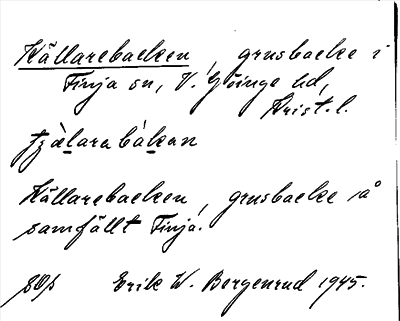 Källarebacken, grusbacke i
Finja sn, V. Göinge hd,
Krist. l.
tʒä̀larabákan
Källarebacken, grusbacke på
samfällt Finja.
Erik W. Bergenrud 1945.